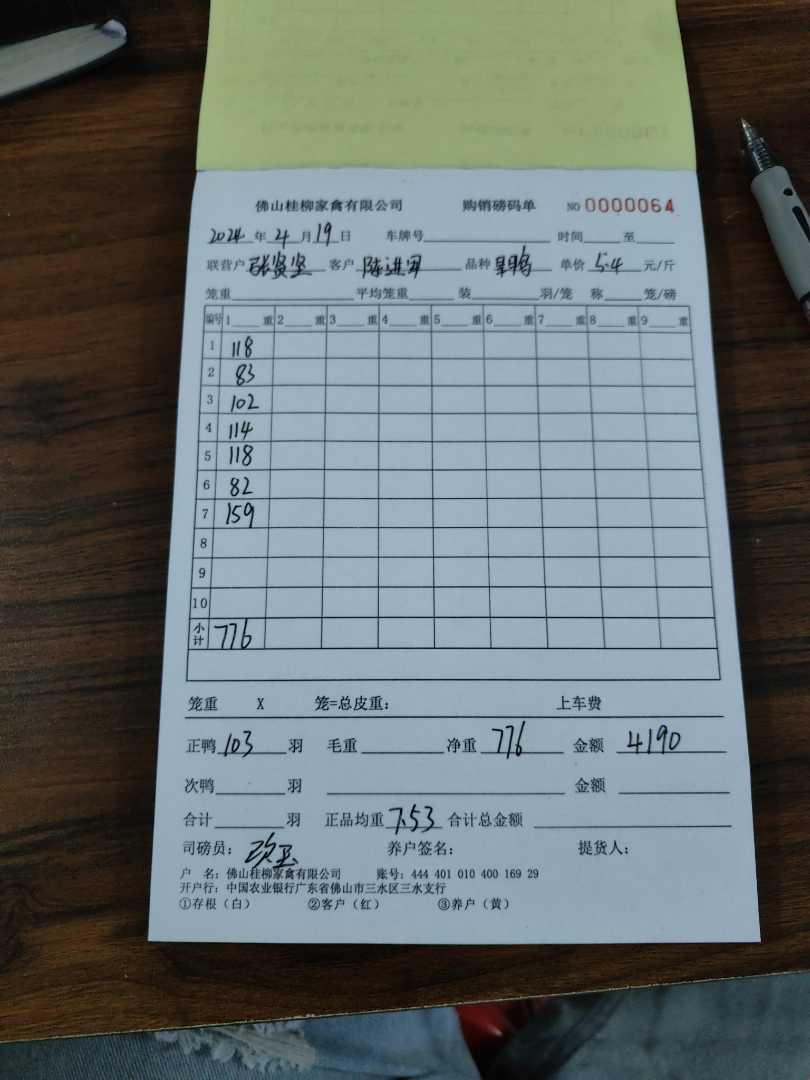 佛山桂柳家禽有限公司 购销磅码单 NO 0000064
2024年4月19日 车牌号 时间 至
联营户 张贤坚 客户 陈进军 品种 单价 5.4 元/斤
笼重 平均笼重 装 羽/笼 称 笼/磅
编号 1 重 2 重 3 重 4 重 5 重 6 重 7 重 8 重 9 重
1 118
2 83
3 102
4 114
5 118
6 82
7 159
8
9
10
小计 776
笼重 X 笼=总皮重: 上车费
正鸭 103 羽 毛重 净重 776 金额 4190
次鸭 羽 金额
合计 羽 正品均重 7.53 合计总金额
司磅员: 养户签名: 提货人:
户 名: 佛山桂柳家禽有限公司 账号: 444 401 010 400 169 29
开户行: 中国农业银行广东省佛山市三水区三水支行
①存根(白) ②客户(红) ③养户(黄)